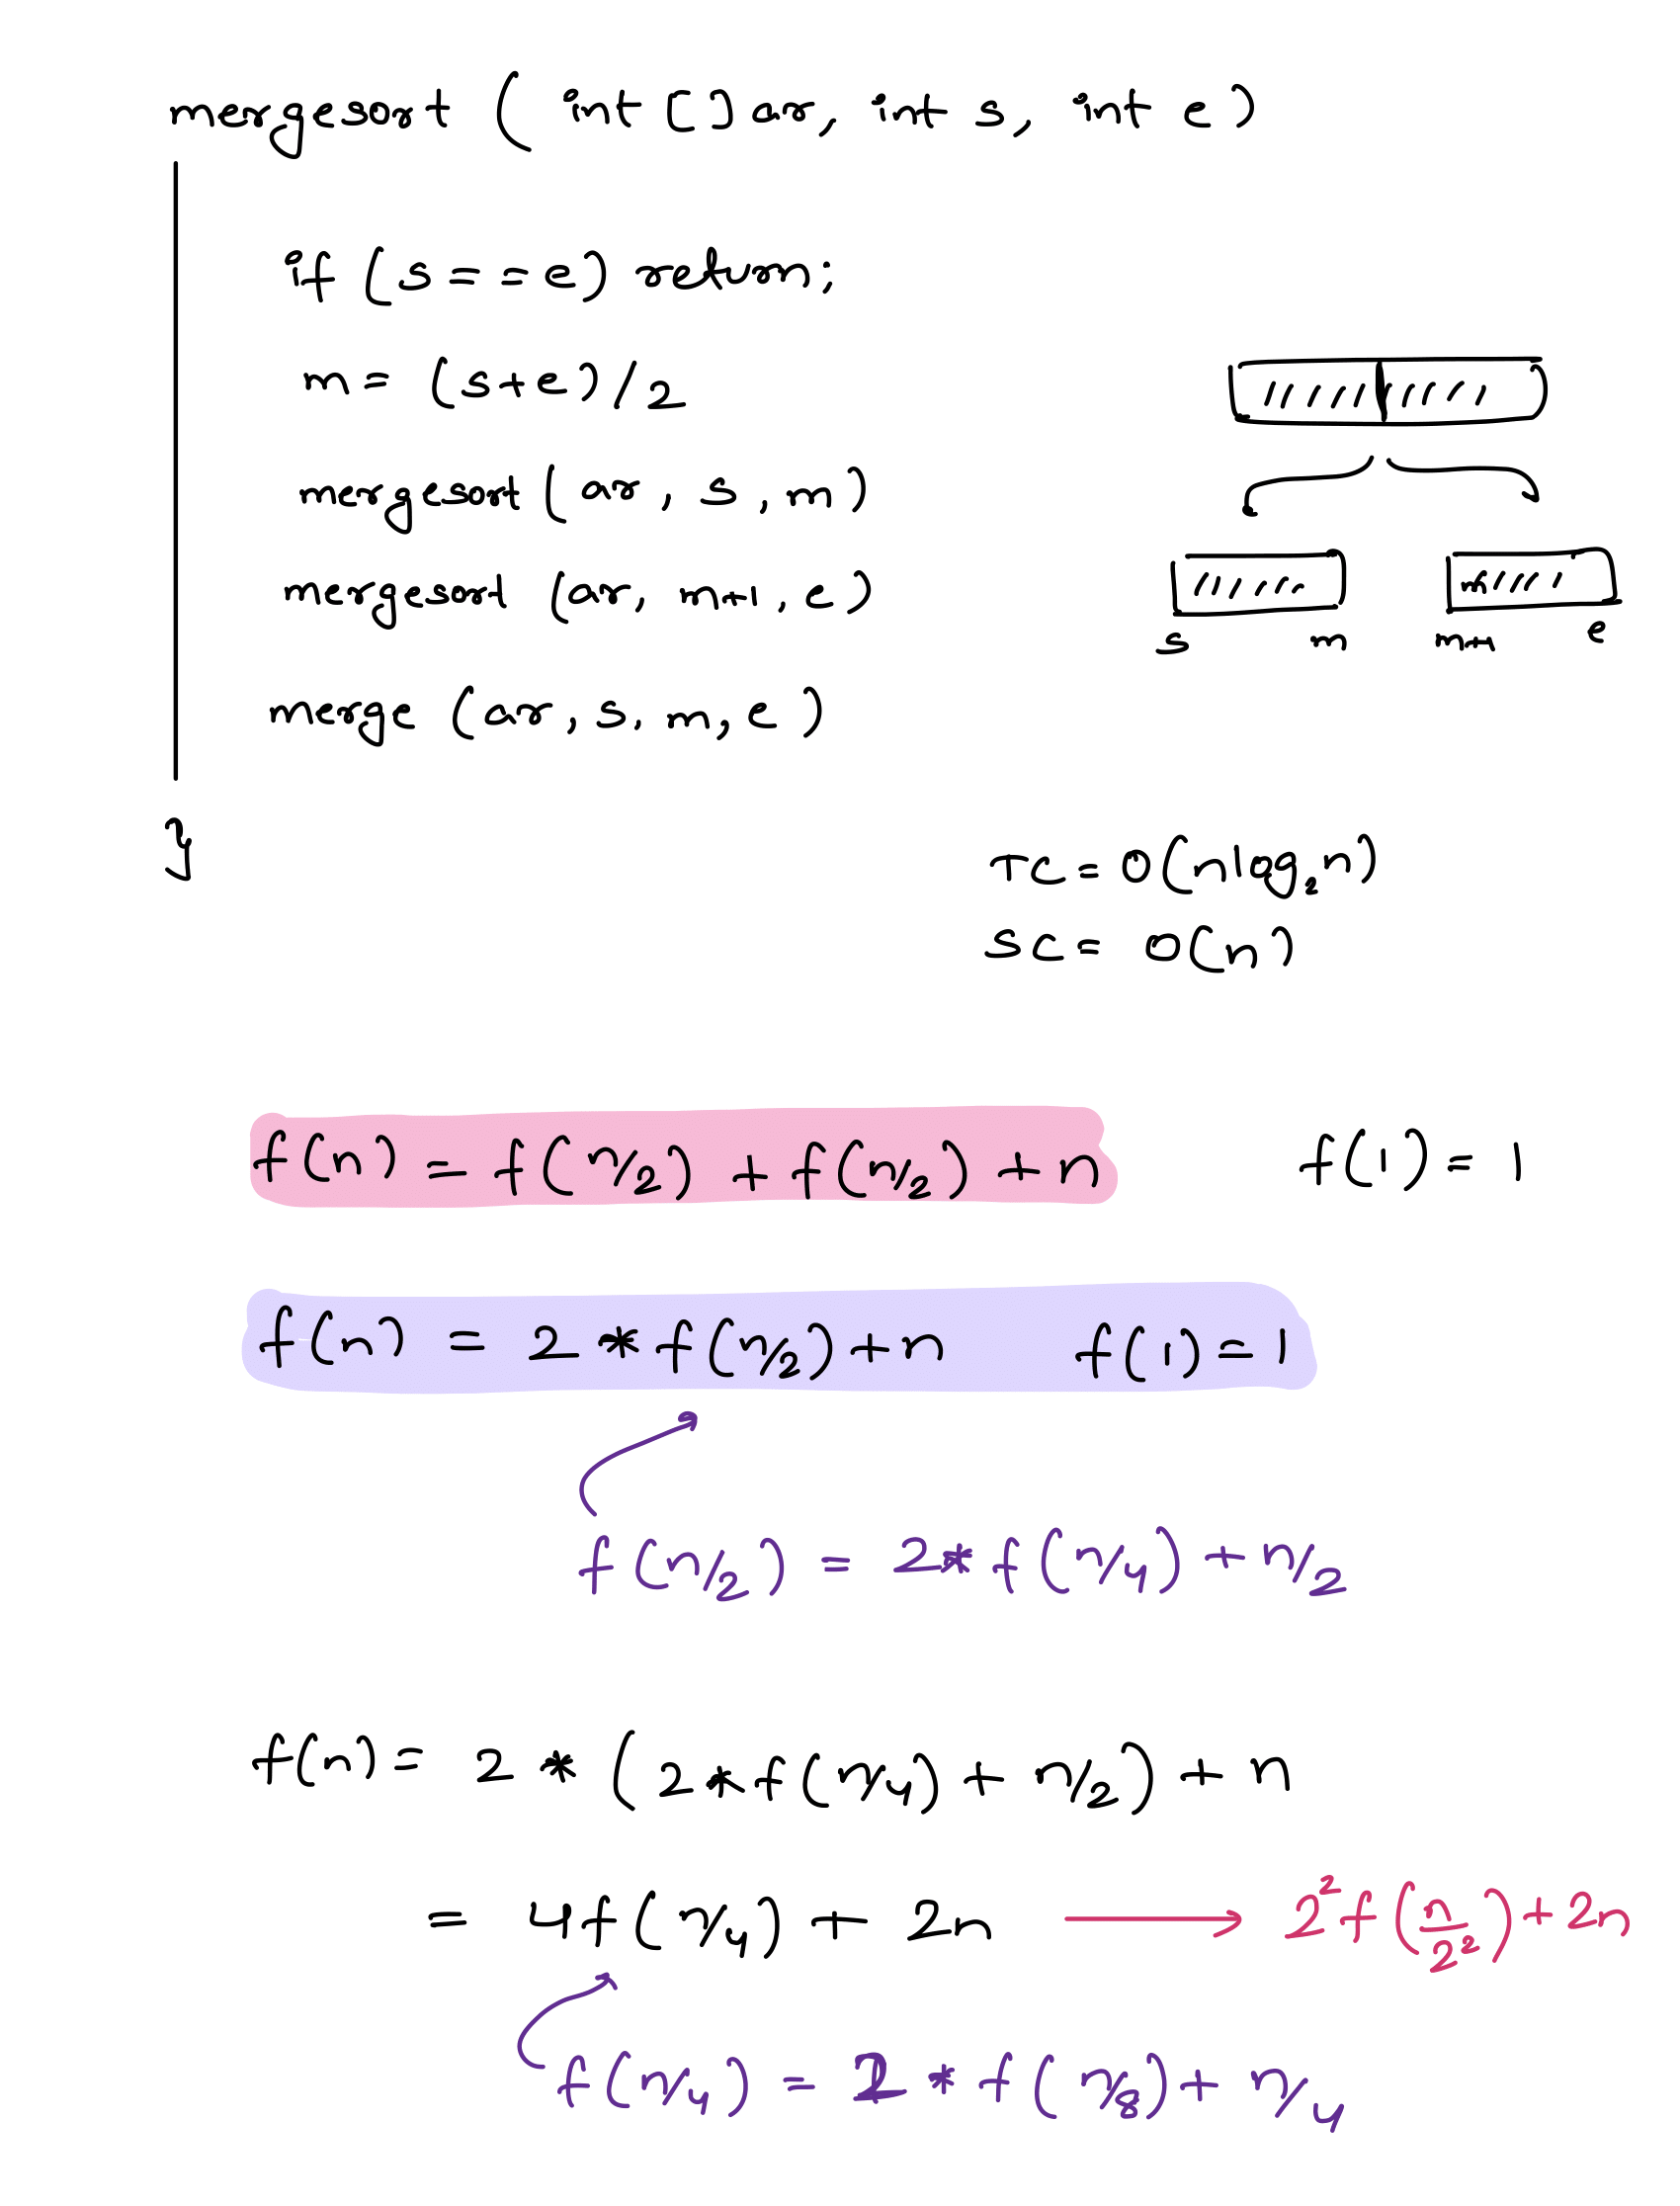 mergesort ( int [] ar, int s, int e )
if (s==e) return;
m = (s+e)/2
mergesort (ar, s, m)
mergesort (ar, m+1, e)
s m m+1 e
merge (ar, s, m, e)
}
TC = O(nlog₂n)
SC = O(n)
f(n) = f(n/2) + f(n/2) + n f(1) = 1
f(n) = 2 * f(n/2) + n f(1) = 1
f(n/2) = 2 * f(n/4) + n/2
f(n) = 2 * (2 * f(n/4) + n/2) + n
= 4f(n/4) + 2n → 2² f(n/2²) + 2n
f(n/4) = 2 * f(n/8) + n/4